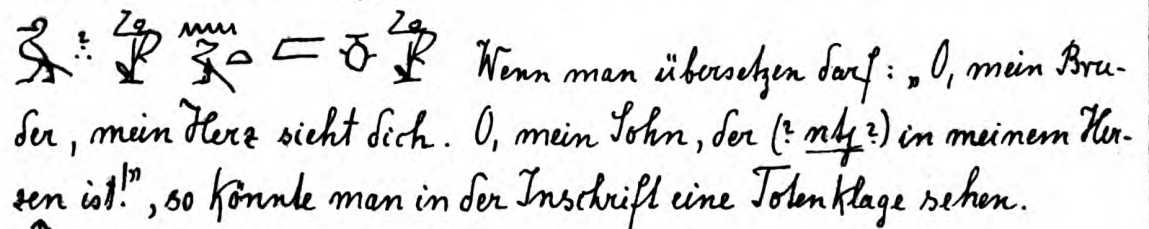 Wenn man übersetzen darf: „O, mein Bru-
der, mein Herz sieht dich. O, mein Sohn, der (? ntj ?) in meinem Her-
zen ist!", so könnte man in der Inschrift eine Totenklage sehen.